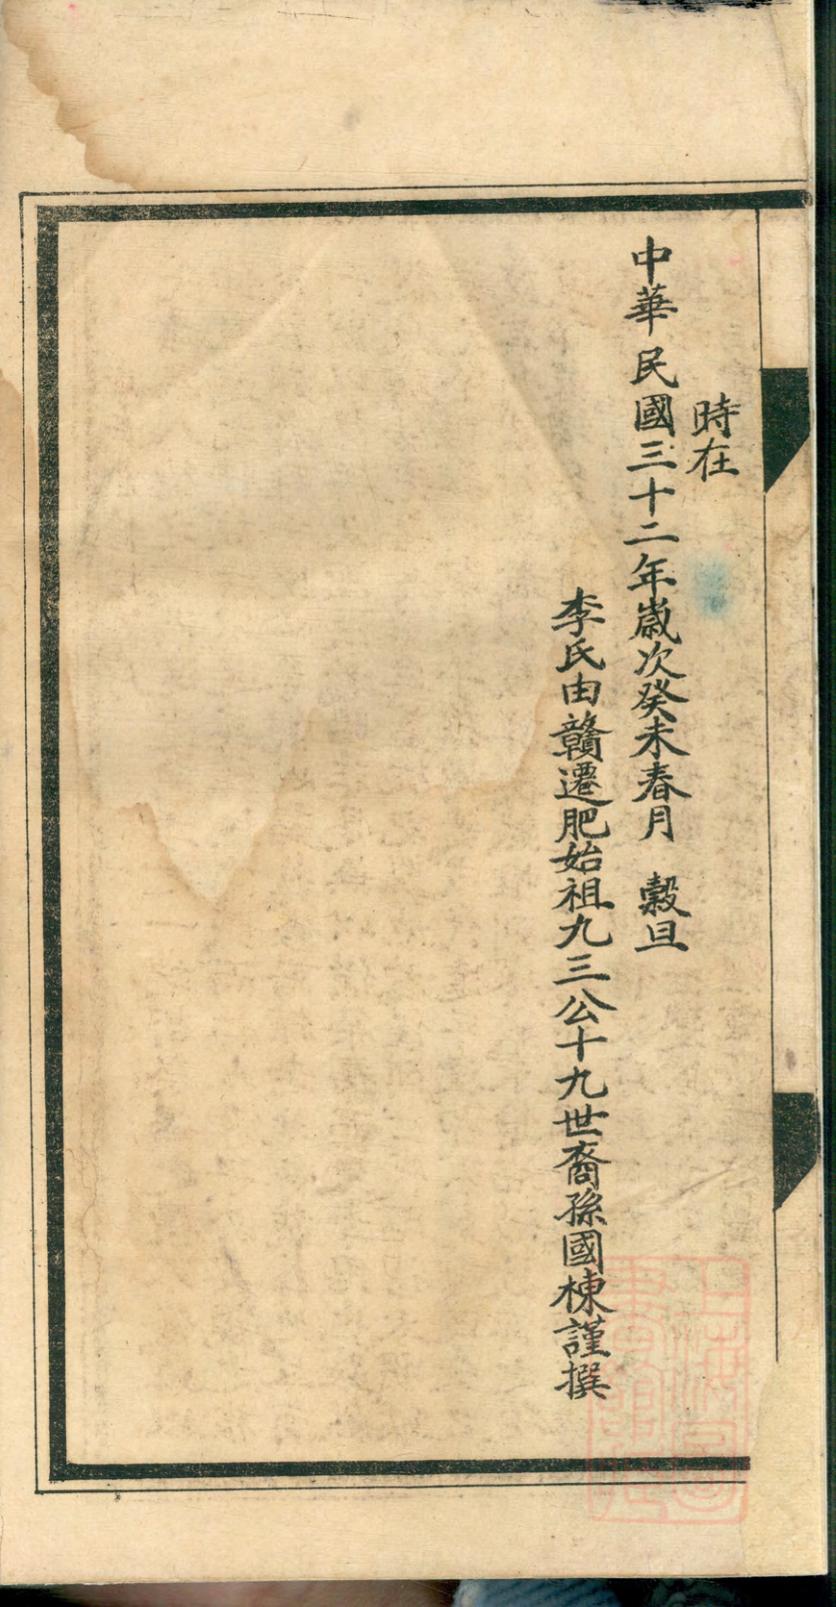 時在
中華民國三十二年歲次癸未春月 穀旦
李氏由贛遷肥始祖九三公十九世裔孫國棟謹撰
上海圖書館藏